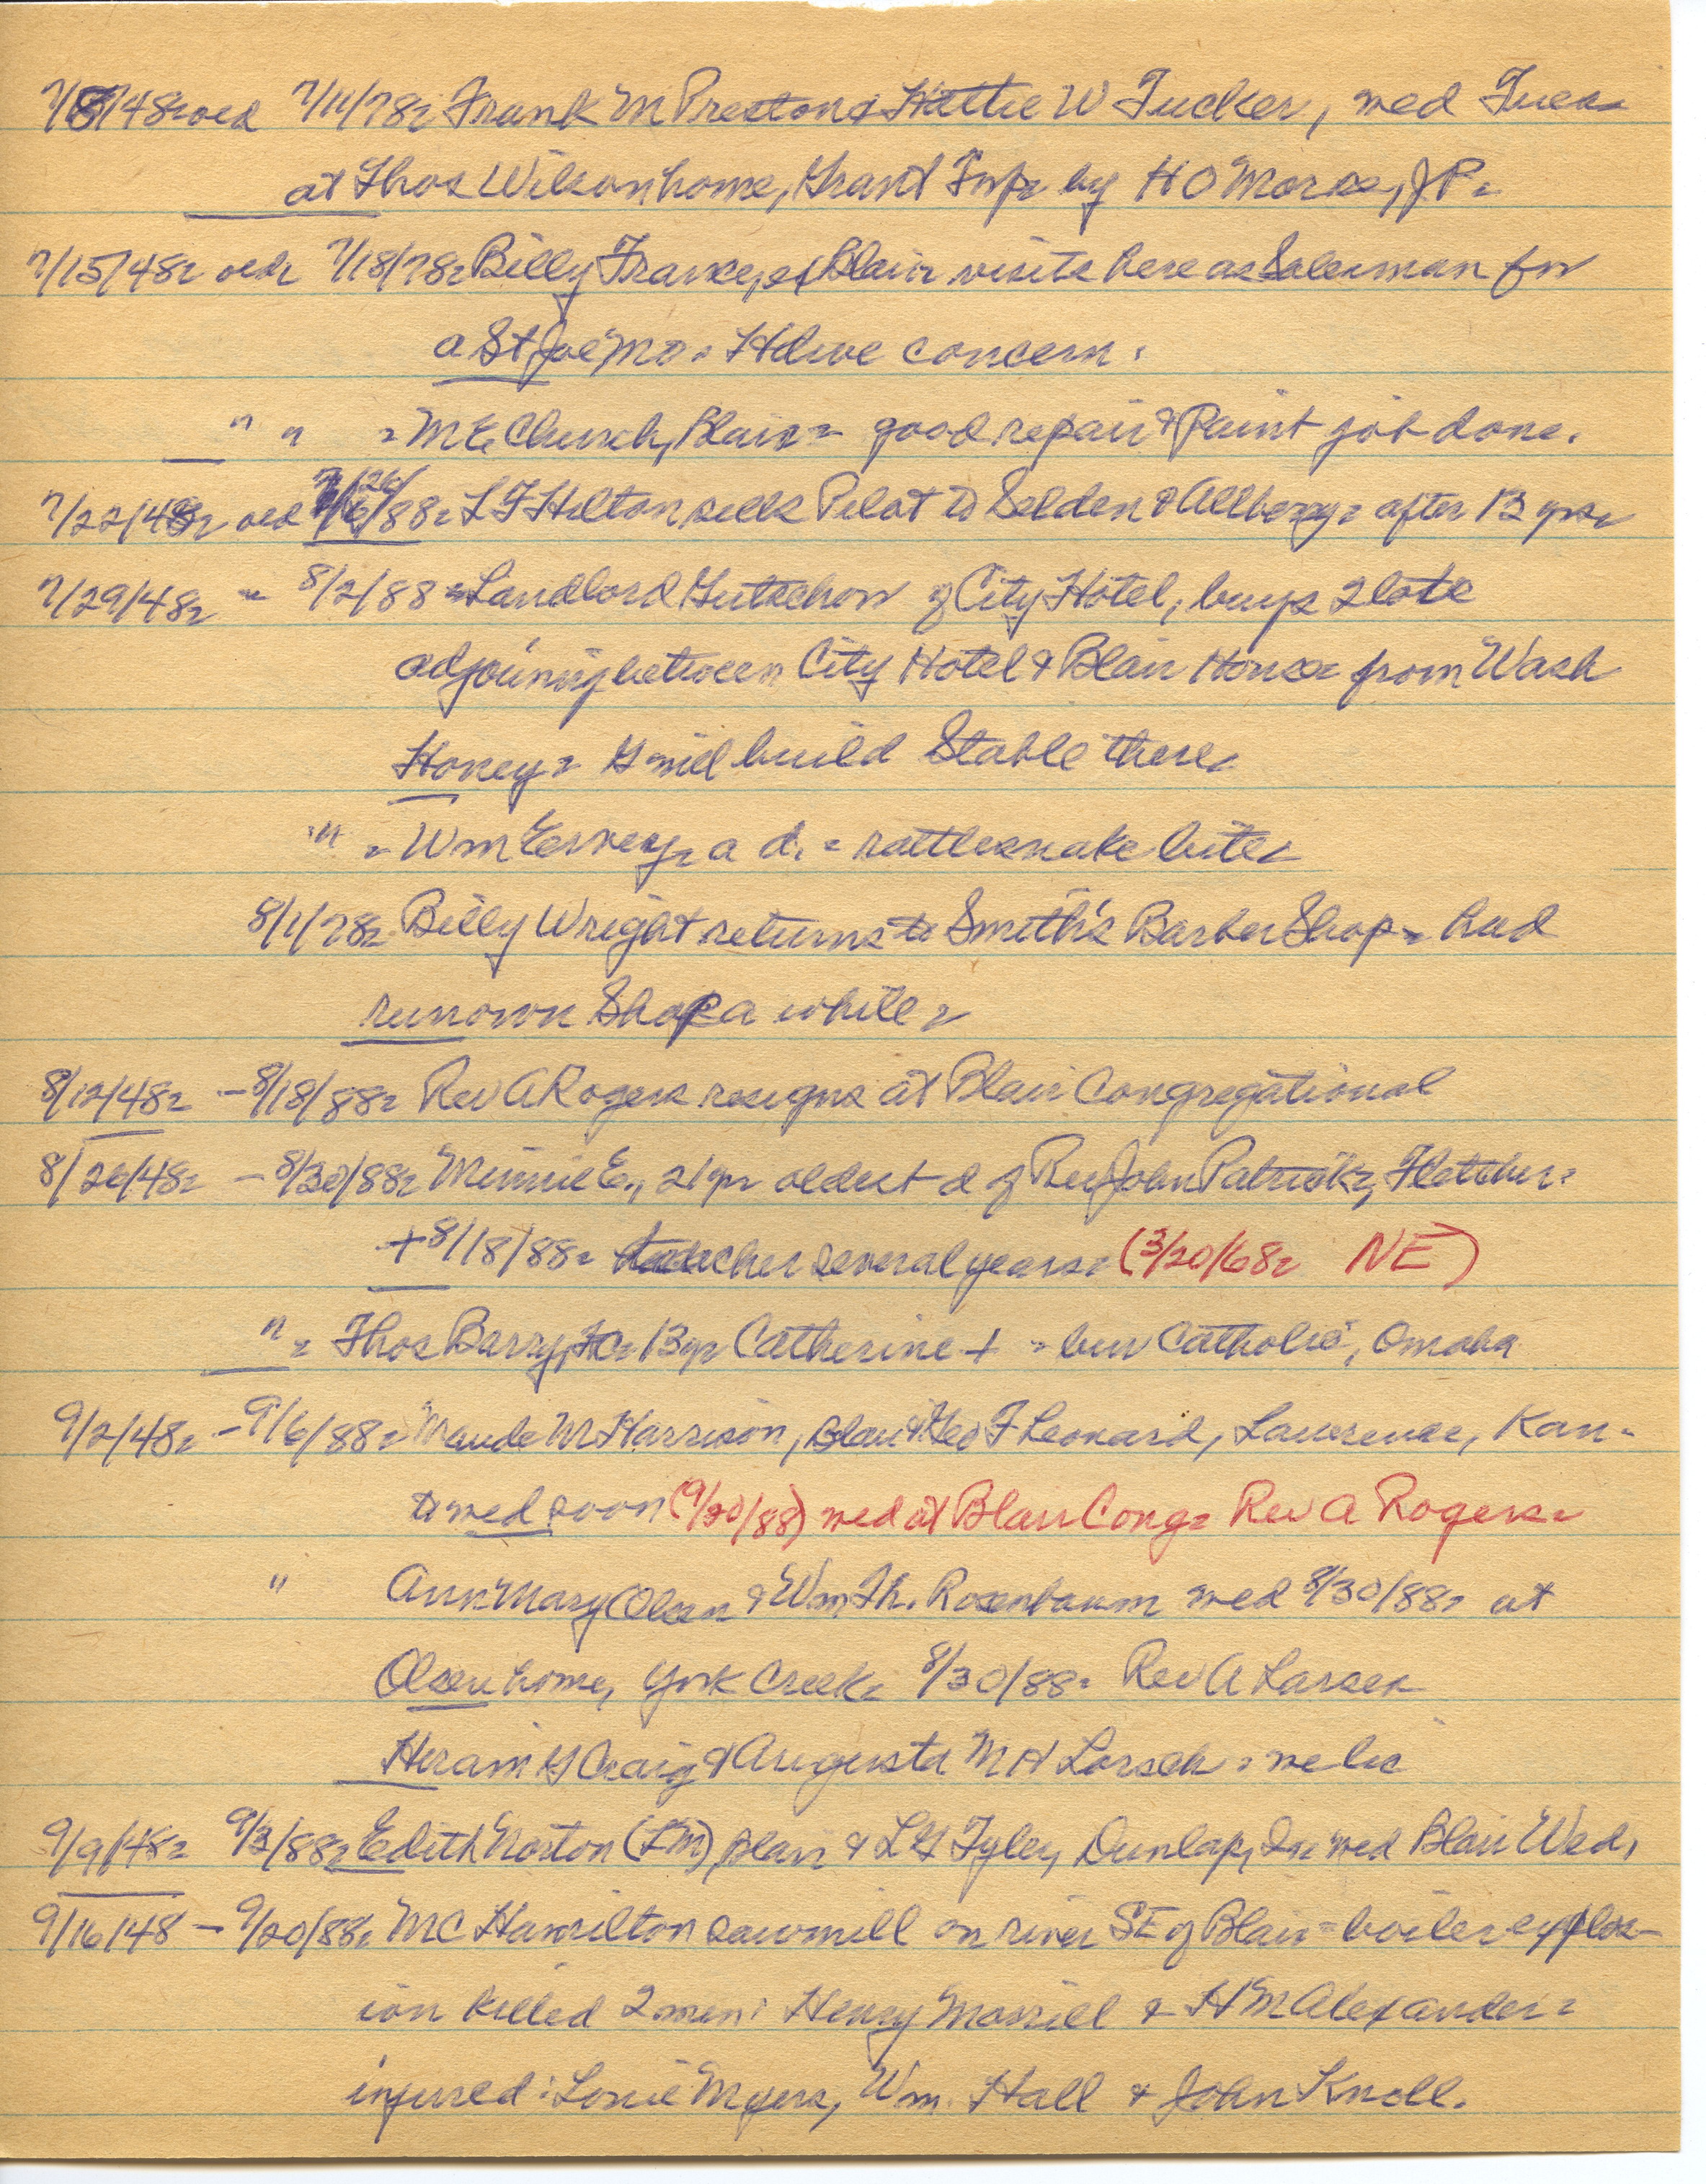 7/8/48= oed 7/11/78= Frank M Preston & Hattie W Tucker, wed Tues=
at Thos Wilson home, Grant Twp= by H O Morse, JP=
7/15/48= oed= 7/18/78= Billy France, ex Blair= visits here as Salesman for
a St Joe Mo. Hdwe concern.
" " = ME Church, Blair = good repair & Paint job done.
7/22/48= oed 7/26/88= L F Hilton sells Pilot to Selden & Allbery= after 13 yrs=
7/29/48= " 8/2/88 = Landlord Gutschow of City Hotel, buys 2 lots
adjoining between City Hotel & Blair House from Wash
Honey= G will build Stable there=
" = Wm a d. = rattlesnake bite=
8/1/78= Billy Wright returns to Smith's Barber Shop = had
run own Shop a while =
8/12/48= - 8/18/88= Rev A Rogers resigns at Blair Congregational
8/26/48= - 8/30/88= Minnie E., 21 yr oldest d of Rev John Patrick, Fletcher=
+ 8/18/88= teacher several years= (3/20/68= NE)
" = Thos Barry, 13 yr Catherine + = bur Catholic, Omaha
9/2/48= - 9/6/88= Maude M Harrison, Blair & Geo F Leonard, Lawrence, Kan-
to wed soon (9/20/88) wed at Blair Cong= Rev A Rogers=
" Ann Mary Olsen & Wm Th. Rosenbaum wed 8/30/88= at
Olsen home, York Creek= 8/30/88= Rev A Larsen
Hiram G Craig & Augusta M H Lorsch = we lic
9/9/48= 9/3/88= Edith Norton (LM) Blair & L G Tyley, Dunlap, Ia= wed Blair Wed,
9/16/48 - 9/20/88= MC Hamilton sawmill on river SE of Blair = boiler explos-
ion killed 2 men: Henry Morrill & H M Alexander=
injured: Louie Myers, Wm. Hall & John Knoll.